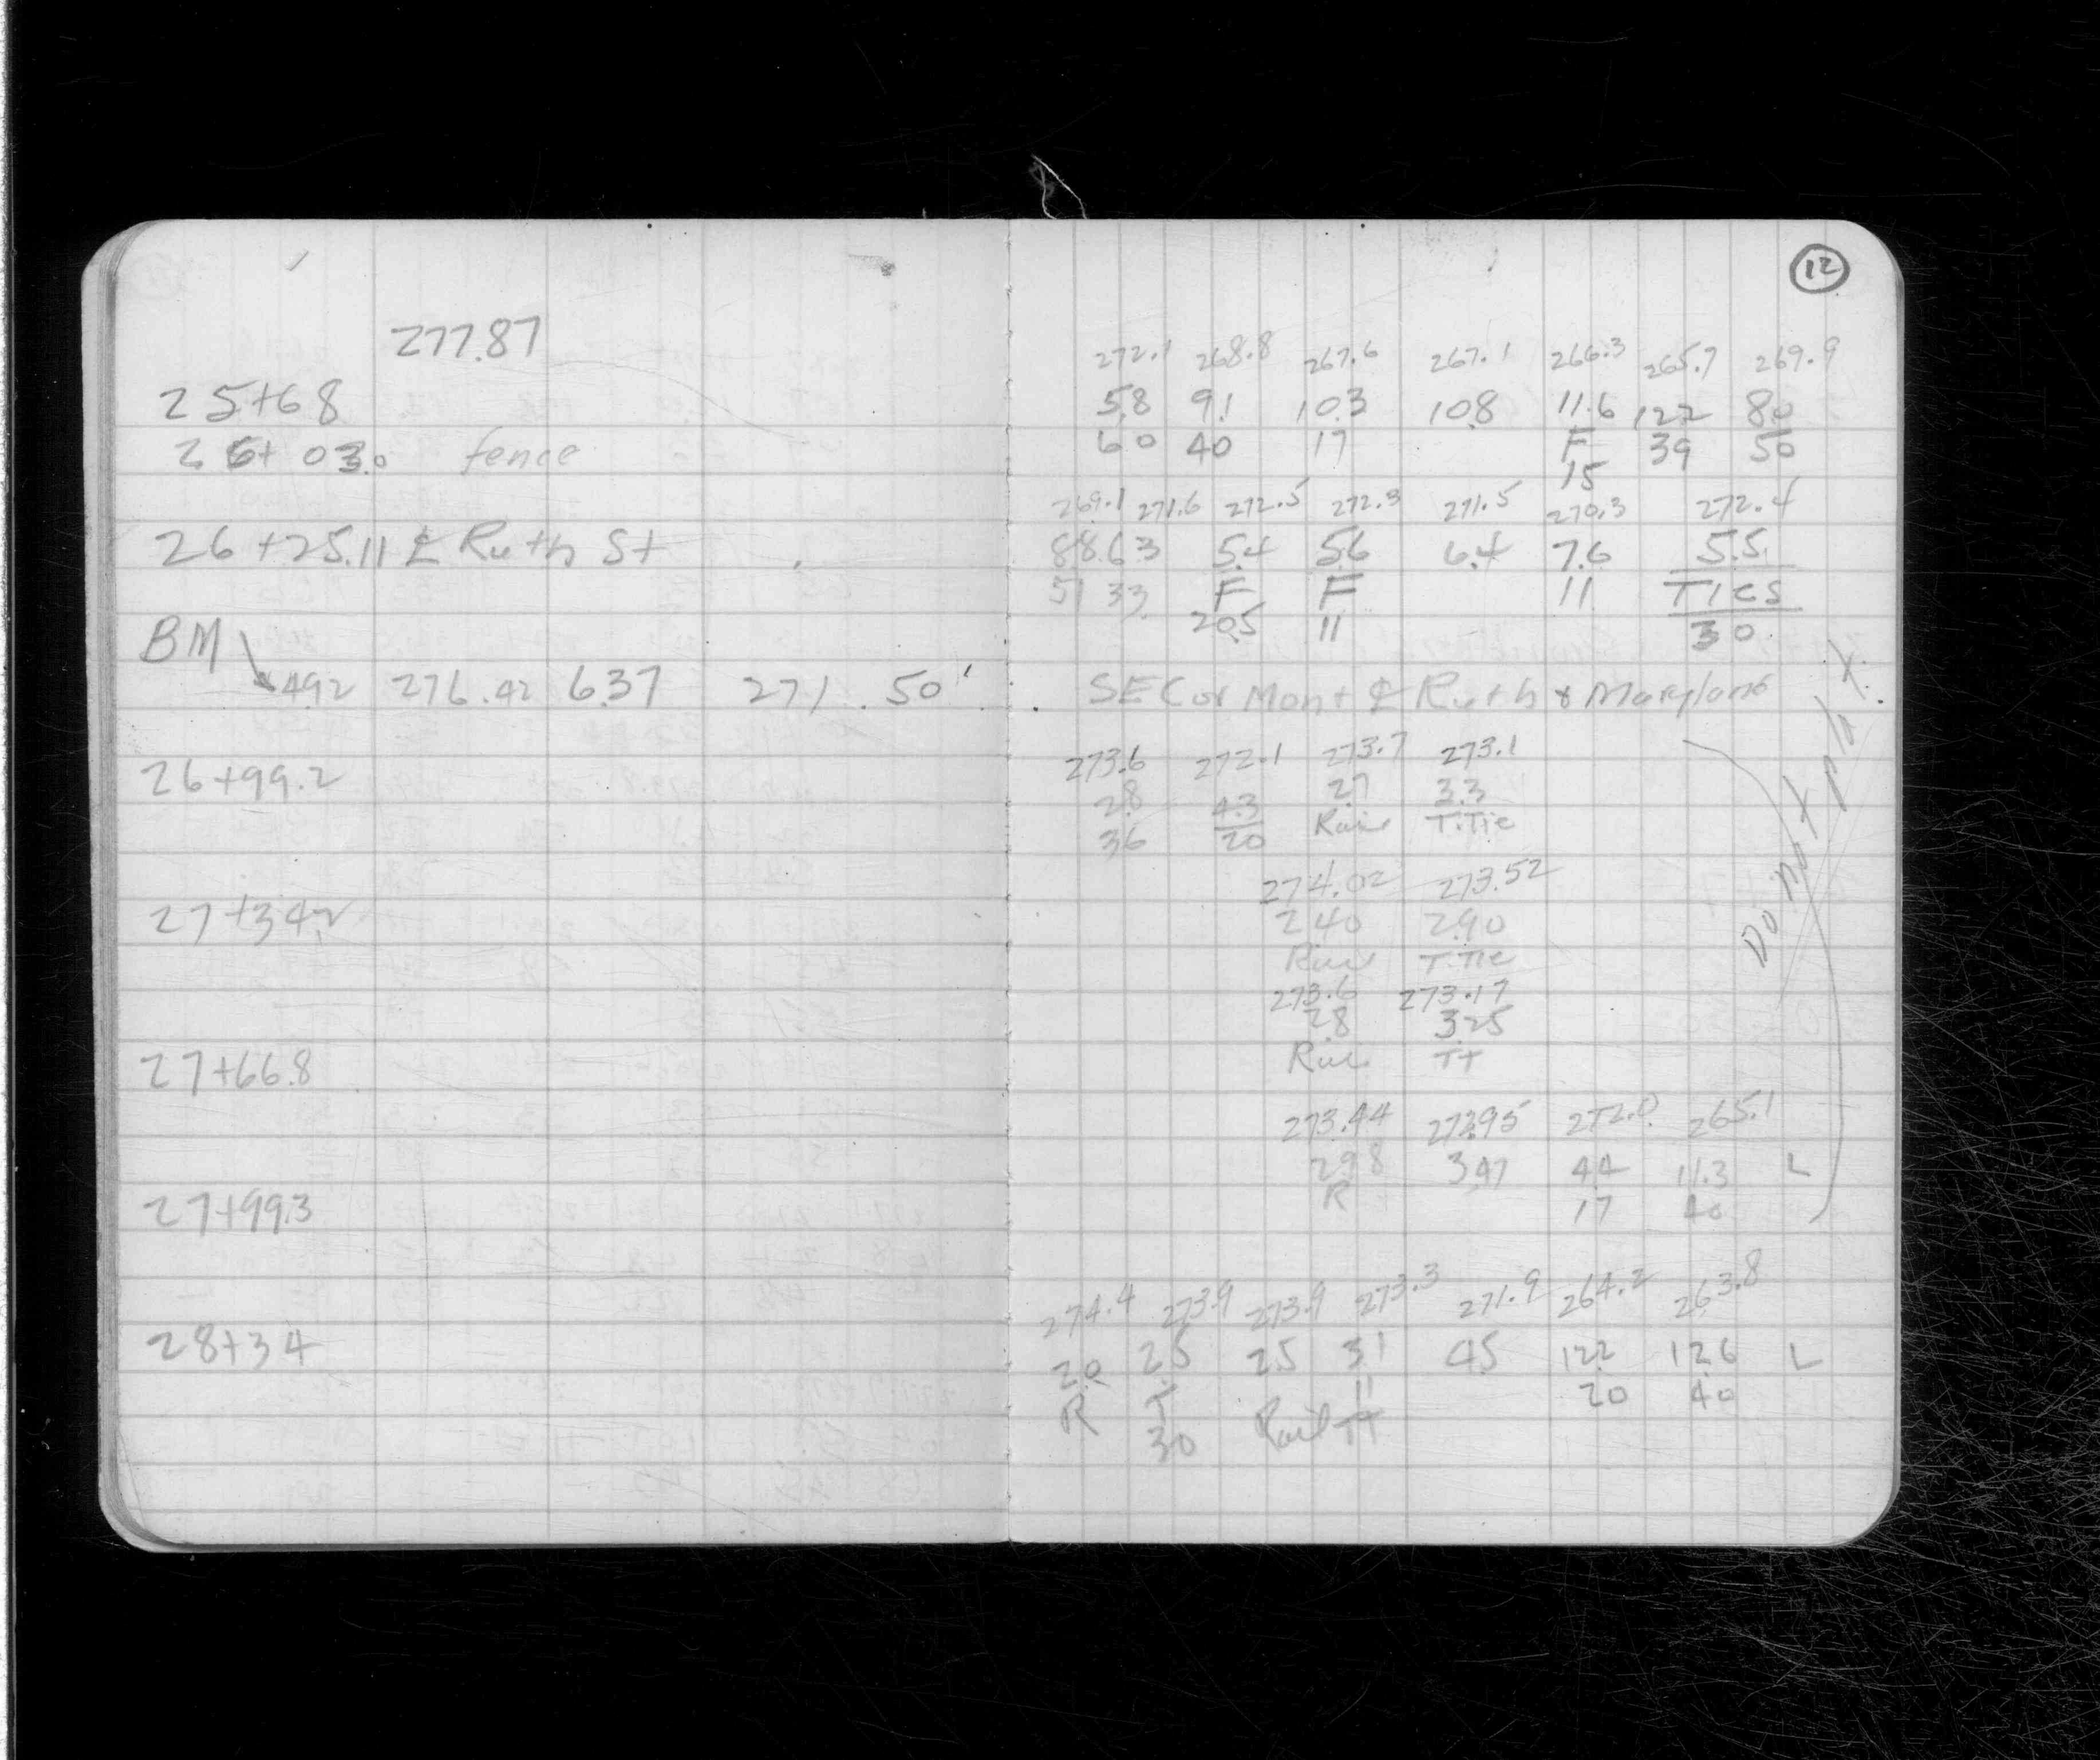 12
277.87
272.1 268.8 267.6 267.1 266.3 265.7 269.9
25+68 5.8 9.1 10.3 10.8 11.6 12.2 8.0
26+03.0 fence 60 40 17 F 39 50
15
269.1 271.6 272.5 272.3 271.5 270.3 272.4
26+25.11 ℄ Ruth St 8.8 6.3 5.4 5.6 6.4 7.6 5.5
51 33 F F 11 TIES
20.5 11 30
BM
4.92 276.42 6.37 271.50' SE Cor Mont ℄ Ruth & Maryland
273.6 272.1 273.7 273.1
26+99.2 2.8 4.3 2.7 3.3
36 20 T.Tie
274.02 273.52
27+34.2 2.40 2.90
T.Tie
273.6 273.17
2.8 3.25
27+66.8 TT
273.44 272.95 272.0 265.1
2.98 3.47 4.4 11.3 L
27+99.3 R 17 40
274.4 273.9 273.9 273.3 271.9 264.2 263.8
28+34 2.0 2.5 2.5 3.1 4.5 12.2 12.6 L
R T Rail TT 20 40
30
Do Not